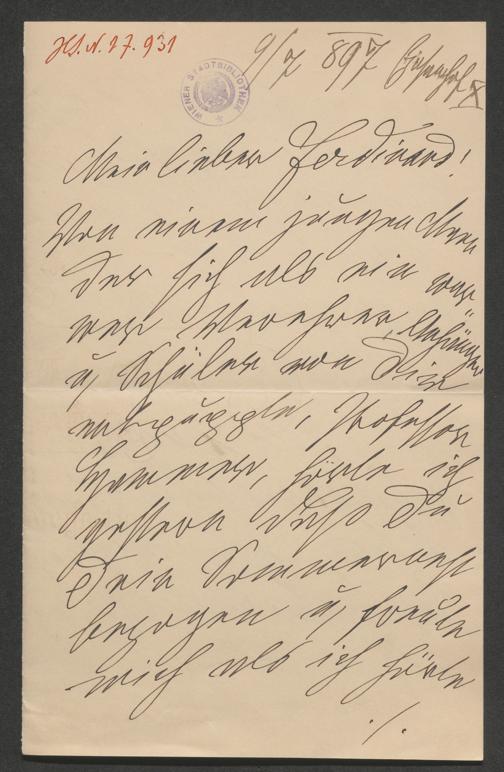 H.I.N. 27.931
WIENER STADTBIBLIOTHEK
9/7 897
Mein lieber Ferdinand!
Von einem jungen Mann
der sich als ein
Verehrer, Anhänger
u, Schüler von Dir
entpuppte, Professor
hörte ich
gestern daß Du
Dein Sommernest
bezogen u, freute
mich als ich hörte
./.